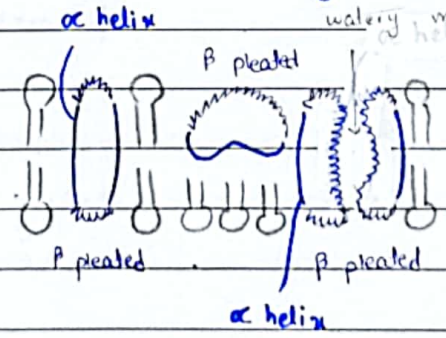 α helix
watery
β pleated
β pleated
β pleated
α helix